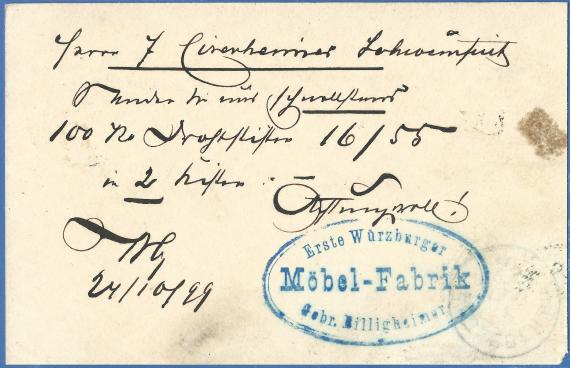 Herrn J Eisenheimer Schweinfurt
Senden Sie mir schnellstens
100 Ko Drahtstiften 16/55
in 2 Kisten.
Achtungsvoll!
Wbg
24/10/99
Erste Würzburger
Möbel-Fabrik
Gebr. Billigheimer